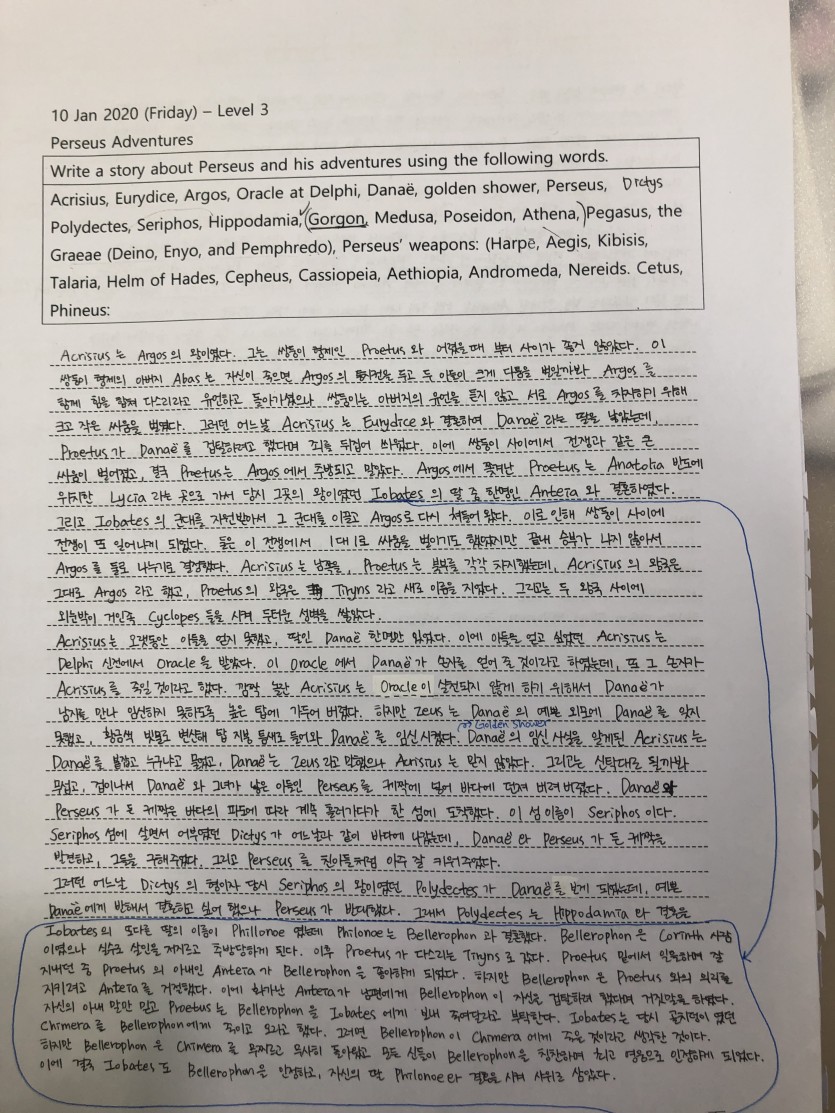 10 Jan 2020 (Friday) – Level 3
Perseus Adventures
Write a story about Perseus and his adventures using the following words.
Acrisius, Eurydice, Argos, Oracle at Delphi, Danaë, golden shower, Perseus, Dictys
Polydectes, Seriphos, Hippodamia, (Gorgon, Medusa, Poseidon, Athena,) Pegasus, the
Graeae (Deino, Enyo, and Pemphredo), Perseus' weapons: (Harpē, Aegis, Kibisis,
Talaria, Helm of Hades, Cepheus, Cassiopeia, Aethiopia, Andromeda, Nereids. Cetus,
Phineus:
Acrisius는 Argos의 왕이였다. 그는 쌍둥이 형제인 Proetus와 어렸을때 부터 사이가 좋지 않았다. 이
쌍둥이 형제의 아버지 Abas는 자신이 죽으면 Argos의 통치권을 두고 두 아들이 크게 다툼을 벌일까봐 Argos를
함께 힘을 합쳐 다스리라고 유언하고 돌아가셨으나 쌍둥이는 아버지의 유언을 듣지 않고 서로 Argos를 차지하기 위해
크고 작은 싸움을 벌였다. 그러던 어느날 Acrisius는 Eurydice와 결혼하여 Danaë라는 딸을 낳았는데,
Proetus가 Danaë를 겁탈하려고 했다며 죄를 뒤집어 씌웠다. 이에 쌍둥이 사이에서 전쟁과 같은 큰
싸움이 벌어졌고, 결국 Proetus는 Argos에서 추방되고 말았다. Argos에서 쫓겨난 Proetus는 Anatolia 반도에
위치한 Lycia라는 곳으로 가서 당시 그곳의 왕이였던 Iobates의 딸 중 한명인 Anteia와 결혼하였다.
그리고 Iobates의 군대를 지원받아서 그 군대를 이끌고 Argos로 다시 쳐들어 왔다. 이로 인해 쌍둥이 사이에
전쟁이 또 일어나게 되었다. 둘은 이 전쟁에서 1대1로 싸움을 벌이기도 했었지만 끝내 승부가 나지 않아서
Argos를 둘로 나누기로 결정했다. Acrisius는 남쪽을, Proetus는 북부를 각각 차지했는데, Acrisius의 왕국은
그대로 Argos라고 했고, Proetus의 왕국은 Tiryns라고 새로 이름을 지었다. 그리고는 두 왕국 사이에
외눈박이 거인족 Cyclopes들을 시켜 두터운 성벽을 쌓았다.
Acrisius는 오랫동안 아들을 얻지 못했고, 딸인 Danaë 한명만 있었다. 이에 아들을 얻고 싶었던 Acrisius는
Delphi 신전에서 Oracle을 받았다. 이 Oracle에서 Danaë가 손자를 얻어 줄 것이라고 하였는데, 또 그 손자가
Acrisius를 죽일 것이라고 했다. 깜짝 놀란 Acrisius는 Oracle이 실현되지 않게 하기 위해서 Danaë가
남자를 만나 임신하지 못하도록 높은 탑에 가두어 버렸다. 하지만 Zeus는 Danaë의 예쁜 외모에 Danaë를 잊지
못했고, 황금색 빗물로 변신해 탑 지붕 틈새로 들어와 Danaë를 임신 시켰다. Danaë의 임신 사실을 알게된 Acrisius는
Golden Shower
Danaë를 붙잡고 누구냐고 물었고, Danaë는 Zeus라고 말했으나 Acrisius는 믿지 않았다. 그리고는 신탁대로 될까봐
무섭고, 겁이나서 Danaë와 그녀가 낳은 아들인 Perseus를 궤짝에 넣어 바다에 던져 버려버렸다. Danaë와
Perseus가 든 궤짝은 바다의 파도에 따라 계속 흘러가다가 한 섬에 도착했다. 이 섬 이름이 Seriphos이다.
Seriphos 섬에 살면서 어부였던 Dictys가 어느날과 같이 바다에 나갔는데, Danaë와 Perseus가 든 궤짝을
발견하고, 그들을 구해주었다. 그리고 Perseus를 친아들처럼 아주 잘 키워주었다.
그러던 어느날 Dictys의 형이자 당시 Seriphos의 왕이였던 Polydectes가 Danaë를 보게 되었는데, 예쁜
Danaë에게 반해서 결혼하고 싶어 했으나 Perseus가 반대했다. 그래서 Polydectes는 Hippodamia와 결혼을
Iobates의 또다른 딸의 이름이 Phillonoe였는데 Philonoe는 Bellerophon과 결혼했다. Bellerophon은 Corinth 사람
이였으나 실수로 살인을 저지르고 추방당하게 된다. 이후 Proetus가 다스리는 Tiryns로 갔다. Proetus 밑에서 일을하며 잘
지내던 중 Proetus의 아내인 Anteia가 Bellerophon을 좋아하게 되었다. 하지만 Bellerophon은 Proetus와의 의리를
지키려고 Anteia를 거절했다. 이에 화가난 Anteia가 남편에게 Bellerophon이 자신을 겁탈하려 했다며 거짓말을 하였다.
자신의 아내 말만 믿고 Proetus는 Bellerophon을 Iobates에게 보내 죽여달라고 부탁한다. Iobates는 당시 골치덩이였던
Chimera를 Bellerophon에게 죽이고 오라고 했다. 그러면 Bellerophon이 Chimera에게 죽을 것이라고 생각한 것이다.
하지만 Bellerophon은 Chimera를 무찌르고 무사히 돌아왔고 모든 신들이 Bellerophon을 칭찬하며 최고 영웅으로 인정하게 되었다.
이에 결국 Iobates도 Bellerophon을 인정하고, 자신의 딸 Philonoe와 결혼을 시켜 사위로 삼았다.